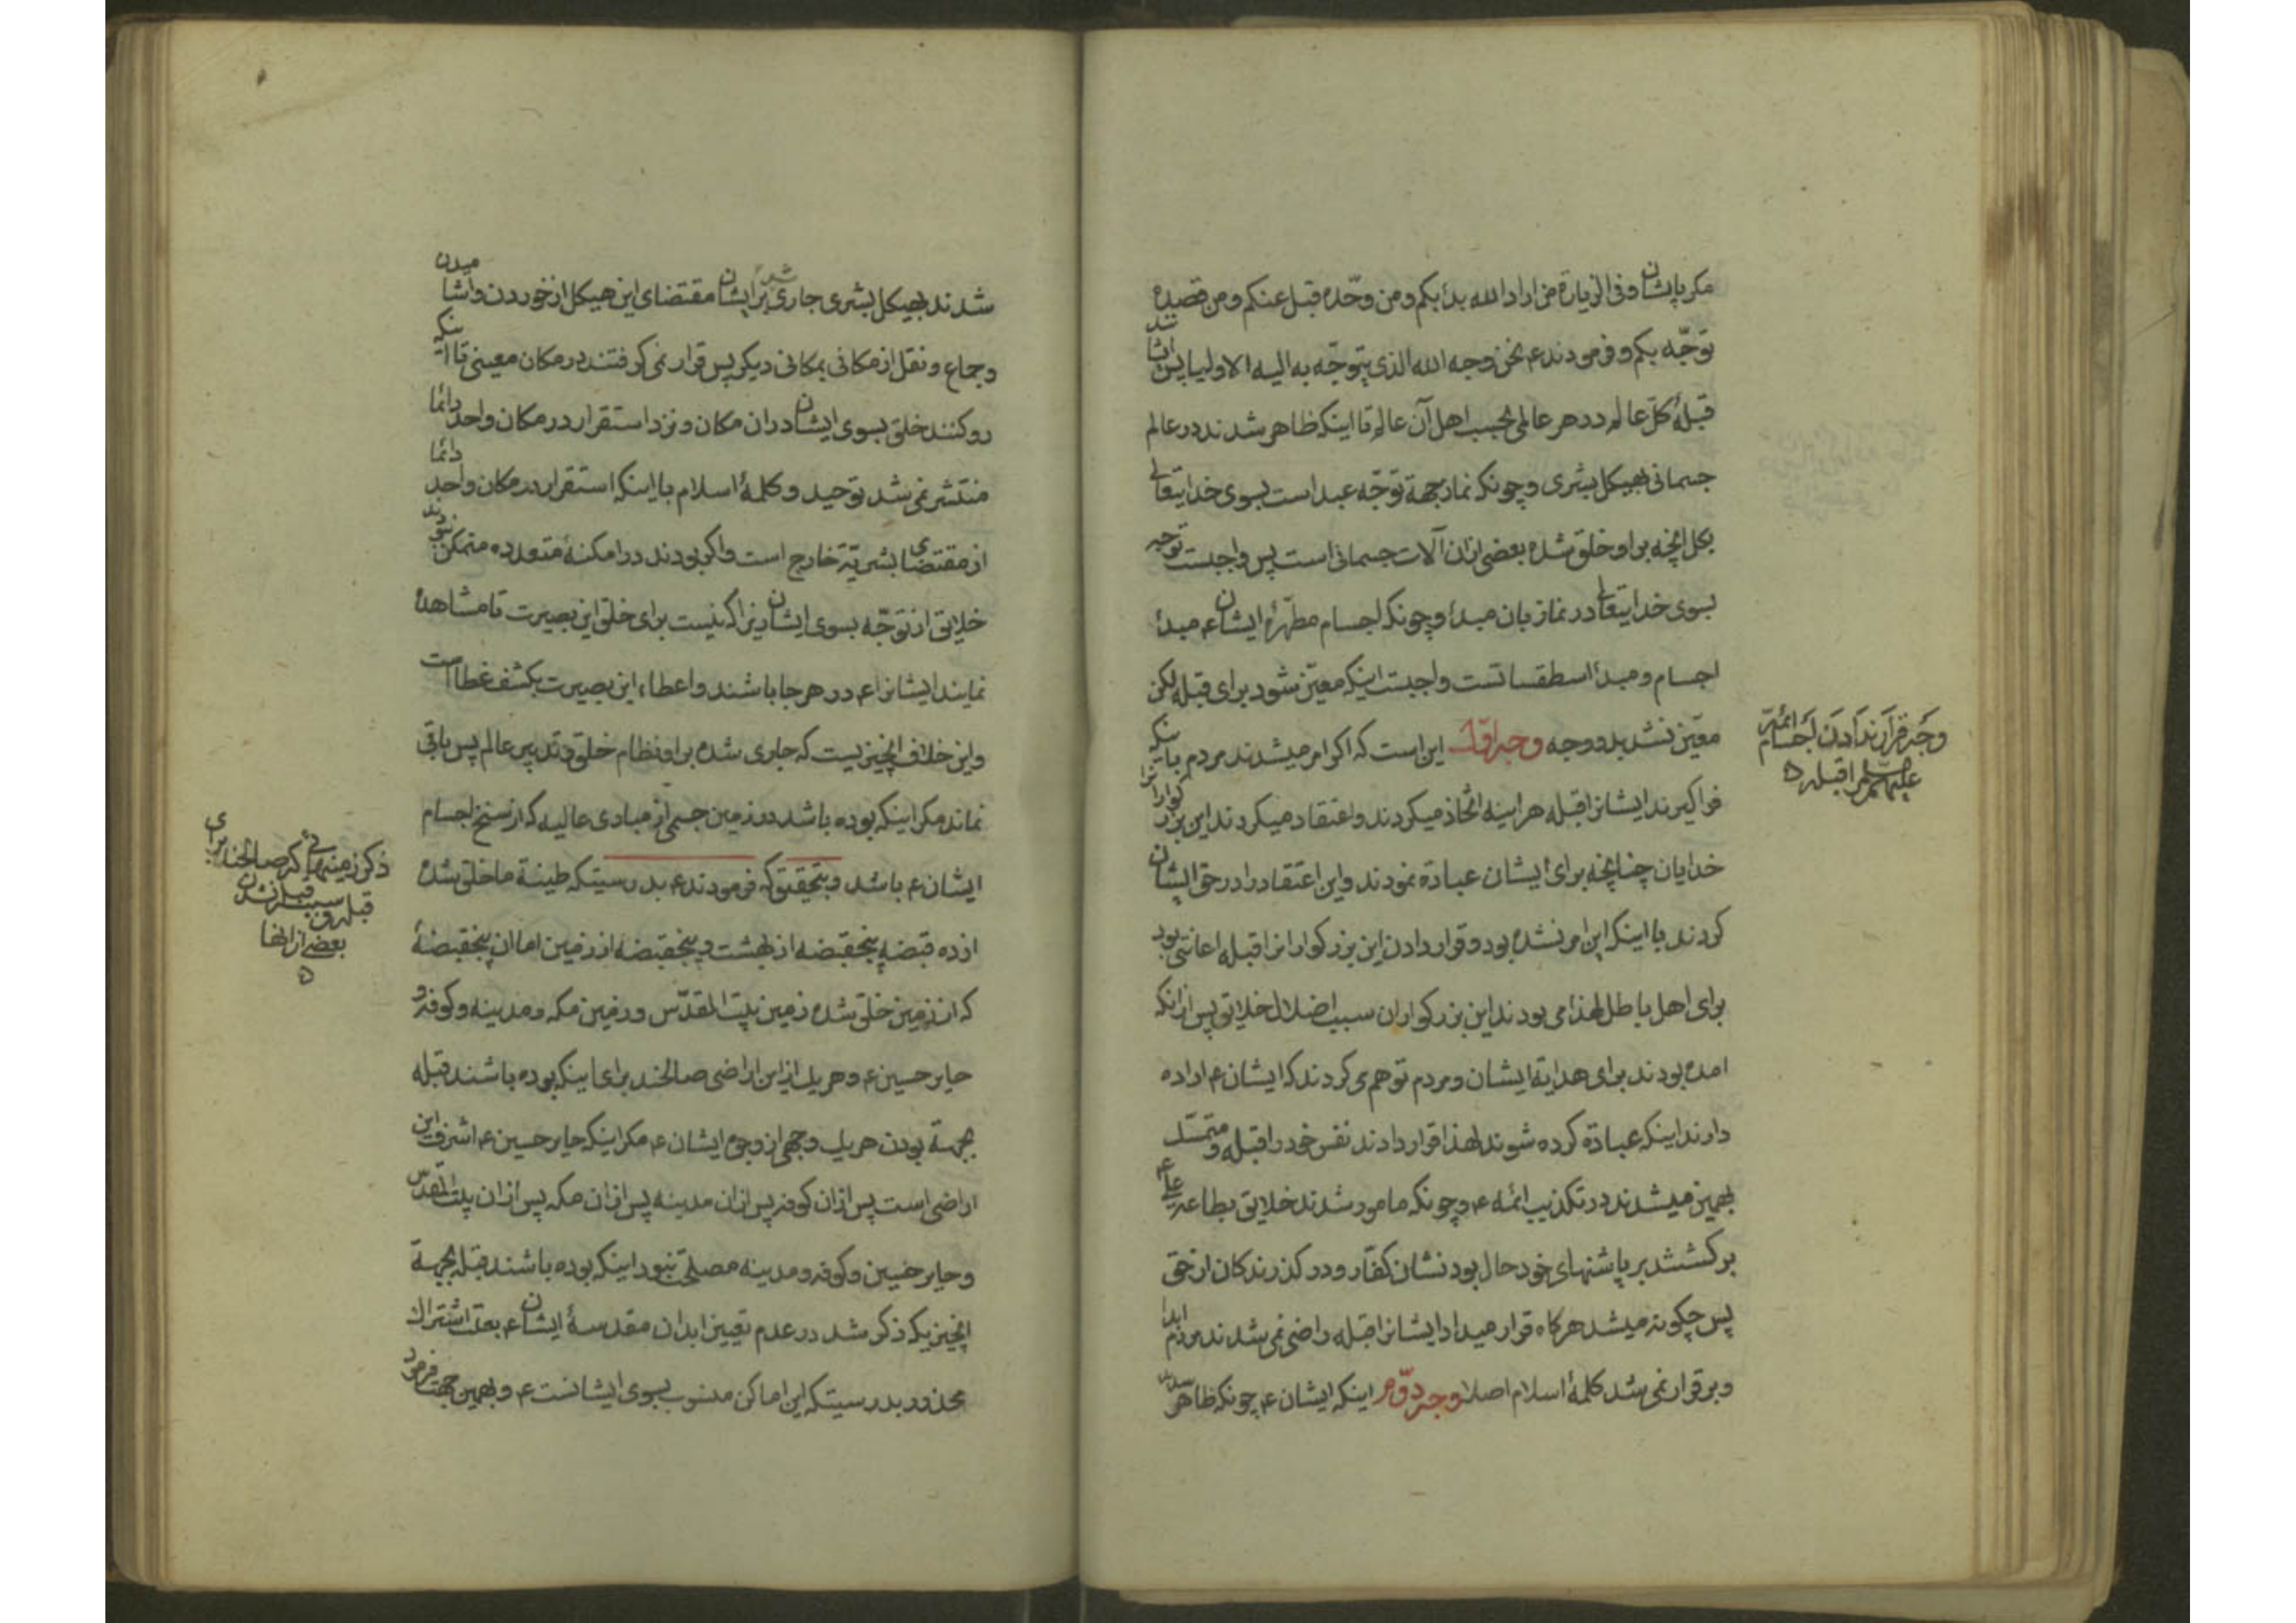 مگر بایشان و فی الزیارة من اراد الله بدأ بکم و من وحّده قبل عنکم و من قصده
توجّه بکم و فرمودند ع نحن وجه الله الذی یتوجّه به الیه الاولیا پس ایشانند
قبلهٔ کل عالم در هر عالمی بحسب اهل آن عالم تا اینکه ظاهر شدند در عالم
جسمانی بهیکل بشری و چونکه نماز جهة توجّه عبد است بسوی خدایتعالی
بکل آنچه براو خلق شده بعضی ازان آلات جسمانی است پس واجبست توجه
بسوی خدایتعالی در نماز بان مبدأ و چونکه اجسام مطهّرهٔ ایشان ع مبدأ
اجسام و مبدأ اسطقساتست واجبست اینکه معیّن شود برای قبله لکن
معیّن نشد بدو وجه وجه اوّل این است که اگر امر میشدند مردم باینکه
فراگیرند ایشانرا قبله هراینه اتخاذ میکردند و اعتقاد میکردند این بزرگوارانرا
خدایان چنانچه برای ایشان عبادة نمودند و این اعتقاد را در حق ایشان
کردند با اینکه این امر نشده بود و قرار دادن این بزرگوارانرا قبله اعانتی بود
برای اهل باطل لهذا می بودند این بزرگواران سبب اضلال خلایق پس ازانکه
امده بودند برای هدایة ایشان و مردم توهم می کردند که ایشان ع اراده
دارند اینکه عبادة کرده شوند لهذا قرار دادند نفس خود را قبله و متمسّک
بهمین میشدند در تکذیب ائمه ع و چونکه مامور شدند خلایق بطاعة علی ع
برگشتند بر پاشنهای خود حال بودنشان کفّار و در گذرندگان از حق
پس چگونه میشد هرگاه قرار میداد ایشانرا قبله راضی نمی شدند مردم ابدا
و برقرار نمی شد کلمهٔ اسلام اصلا وجه دوّم اینکه ایشان ع چونکه ظاهر
وجه قرار ندادن اجسام ائمه
علیهم السلم را قبله
شدند بهیکل بشری جاری شد برایشان مقتضای این هیکل از خوردن و اشامیدن
و جماع و نقل از مکانی بمکانی دیگر پس قرار نمی گرفتند در مکان معینی تا اینکه
رو کنند خلق بسوی ایشان دران مکان و نزد استقرار در مکان واحد دائما
منتشر نمی شد توحید و کلمهٔ اسلام با اینکه استقرار در مکان واحد دائما
از مقتضای بشریّة خارج است و اگر بودند در امکنهٔ متعدده متمکن نبودند
خلایق از توجّه بسوی ایشان زیرا که نیست برای خلق این بصیرت تا مشاهده
نمایند ایشانرا ع در هر جا باشند و اعطاء این بصیرت بکشف غطا است
و این خلاف آنچیزیست که جاری شده براو نظام خلق و تدبیر عالم پس باقی
نماند مگر اینکه بوده باشد در زمین جسمی از مبادی عالیه که از سنخ اجسام
ایشان ع باشد و بتحقیق که فرمودند ع بدرستیکه طینة ما خلق شده
از ده قبضه پنجقبضه از بهشت و پنجقبضه از زمین اما ان پنجقبضهٔ
که از زمین خلق شده زمین بیت المقدّس و زمین مکه و مدینه و کوفه و
حایر حسین ع و هریک از این اراضی صالحند برای اینکه بوده باشند قبله
بجهة بودن هریک وجهی از وجوه ایشان ع مگر اینکه حایر حسین ع اشرف این
اراضی است پس ازان کوفه پس ازان مدینه پس ازان مکه پس ازان بیت المقدّس
و حایر حسین و کوفه و مدینه مصلحت نبود اینکه بوده باشند قبله بجهة
آنچیزیکه ذکر شد در عدم تعیین ابدان مقدسهٔ ایشان ع بعلت اشتراک
محذور بدرستیکه این اماکن منسوب بسوی ایشانست ع و بهمین جهت فرمود
ذکر زمینهائی که صالحند برای
قبله و سبب قبله نشدن
بعضی از انها